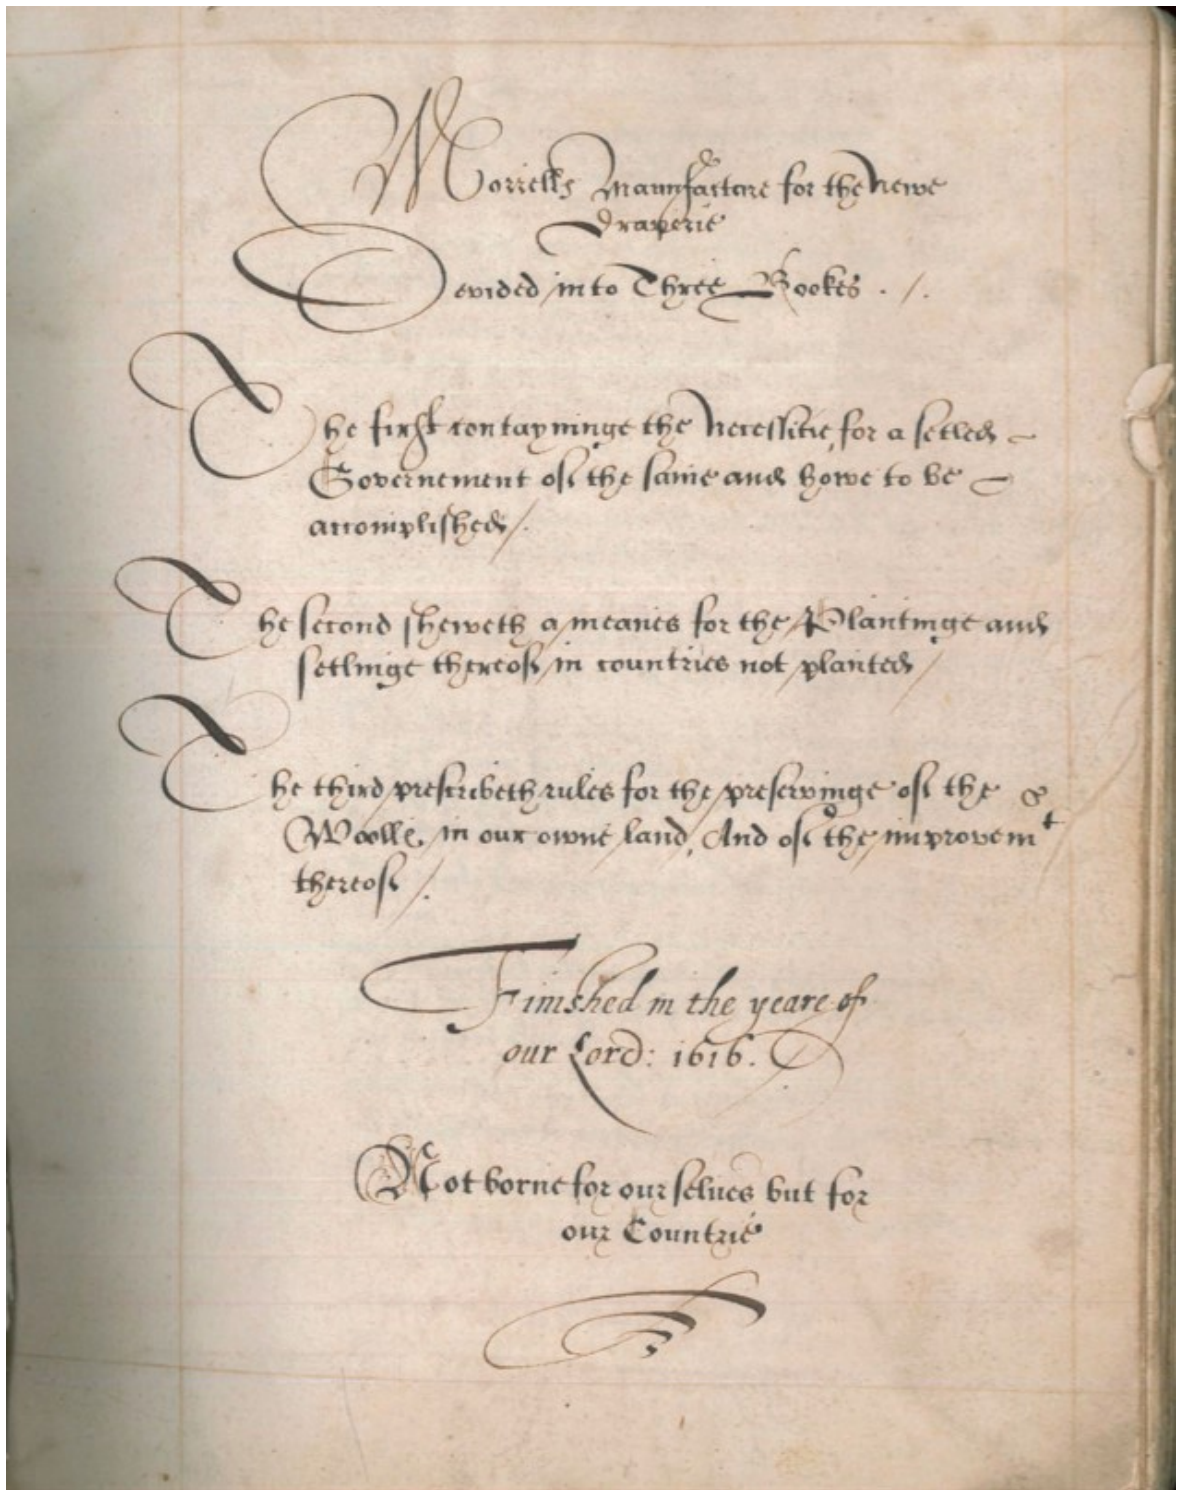 Morrells Manufacture for the Newe
Draperie
Devided into Three Bookes . /.
The first contayninge the Necessitie, for a setled
Governement of the same and howe to be
accomplished /.
The second sheweth a meanes for the Plantinge and
setlinge thereof in countries not planted /
The third prescribeth rules for the preservinge of the
Woolle, in our owne land, And of the improvemt
thereof /.
Finished in the yeare of
our Lord: 1616.
Not borne for our selues but for
our Countrie